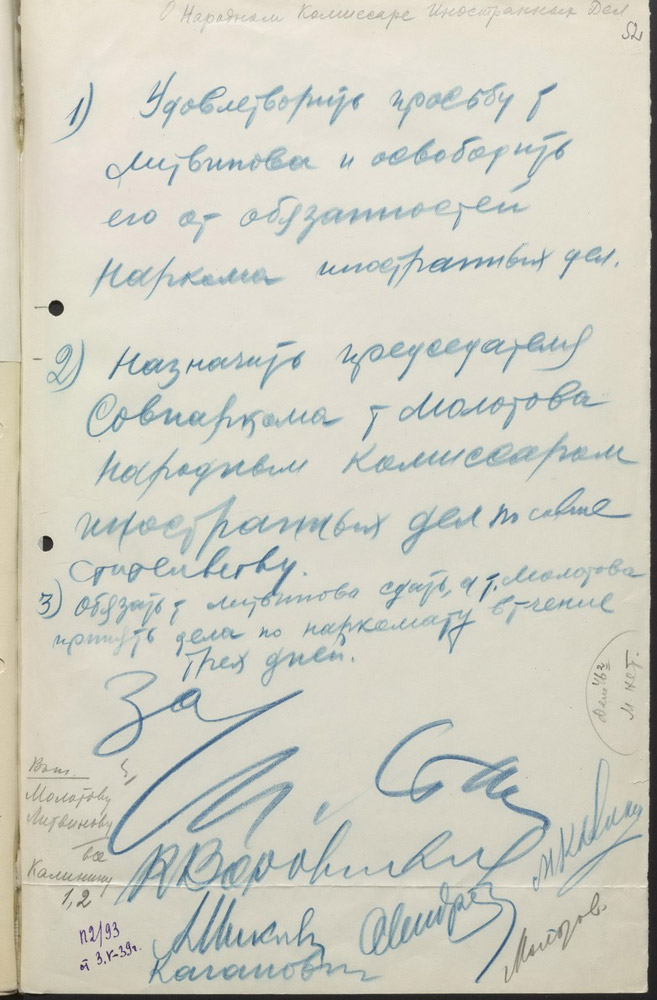 О Народном Комиссаре Иностранных Дел
52
1) Удовлетворить просьбу т
Литвинова и освободить
его от обязанностей
Наркома иностранных дел.
2) Назначить председателя
Совнаркома т Молотова
Народным Комиссаром
иностранных дел по совме
стительству.
3) Обязать т Литвинова сдать, а т. Молотова
принять дела по наркомату в течение
трех дней.
За
И. Ст
К Ворошилов
М Калинин
А Микоян
Андреев
Каганович
Молотов
Вып.
Молотову
Литвинову
все
Калинину
1, 2
П2/93
от 3.V-39г.
М нет.